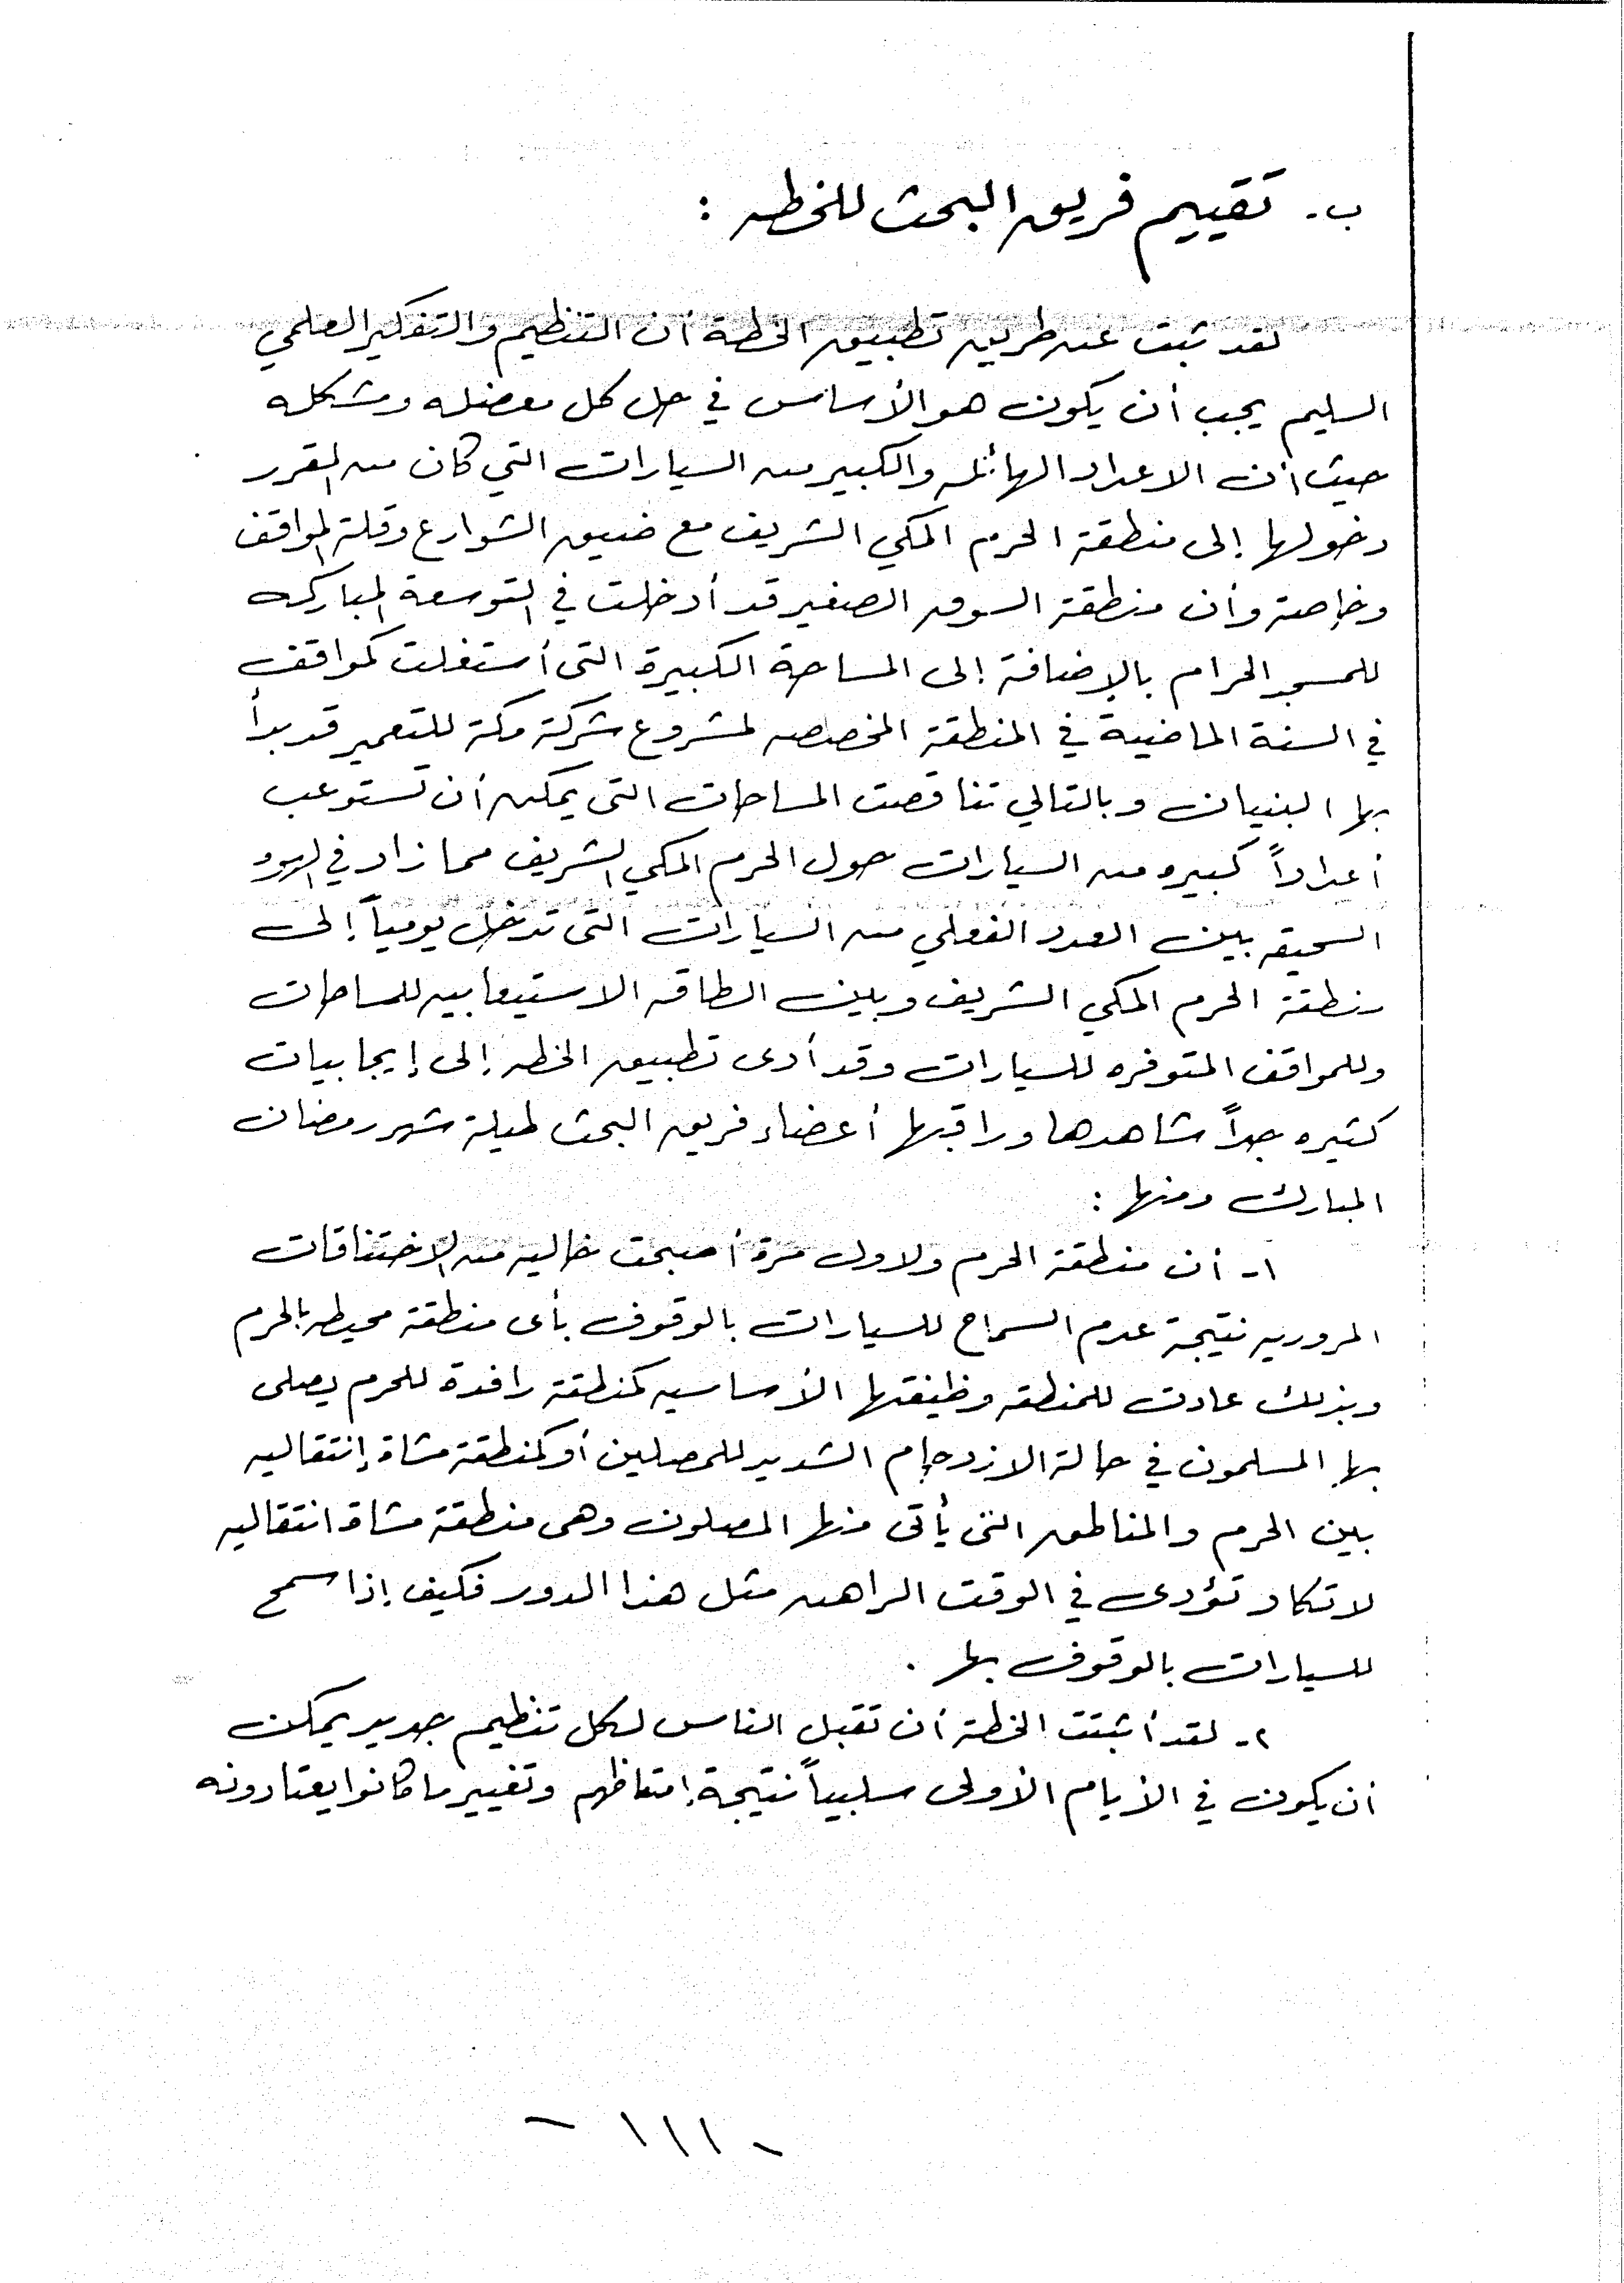 ب- تقييم فريق البحث للخطه :
لقد ثبت عن طريق تطبيق الخطة أن التنظيم والتفكير العلمي
السليم يجب أن يكون هو الأساس في حل كل معضله ومشكله
حيث أن الاعداد الهائله والكبير من السيارات التي كان من المقرر
دخولها إلى منطقة الحرم المكي الشريف مع ضيق الشوارع وقلة المواقف
وخاصة وأن منطقة السوق الصغير قد أدخلت في التوسعة المباركه
للمسجد الحرام بالإضافة إلى المساحة الكبيرة التى أستغلت كمواقف
في السنة الماضية في المنطقة المخصصه لمشروع شركة مكة للتعمير قد بدأ
بها البنيان وبالتالي تناقصت المساحات التى يمكن أن تستوعب
أعداداً كبيره من السيارات حول الحرم المكي الشريف مما زاد في الهوه
السحيقه بين العدد الفعلي من السيارات التى تدخل يومياً إلى
منطقة الحرم المكي الشريف وبين الطاقه الاستيعابيه للساحات
وللمواقف المتوفره للسيارات وقد أدى تطبيق الخطه إلى إيجابيات
كثيره جداً شاهدها وراقبها أعضاء فريق البحث طيلة شهر رمضان
المبارك ومنها :
١- أن منطقة الحرم ولاول مرة أصبحت خاليه من الاختناقات
المروريه نتيجة عدم السماح للسيارات بالوقوف بأى منطقة محيطه بالحرم
وبذلك عادت للمنطقه وظيفتها الأساسيه كمنطقة رافدة للحرم يصلى
بها المسلمون في حالة الازدحام الشديد للمصلين أو كمنطقة مشاة إنتقاليه
بين الحرم والمناطق التى يأتى منها المصلون وهى منطقة مشاة انتقاليه
لاتكاد تؤدى في الوقت الراهن مثل هذا الدور فكيف إذا سمح
للسيارات بالوقوف بها .
٢- لقد أثبتت الخطة أن تقبل الناس لكل تنظيم جديد يمكن
أن يكون في الأيام الأولى سلبياً نتيجة إمتعاظهم وتغيير ما كانوا يعتادونه
- ١١١ -